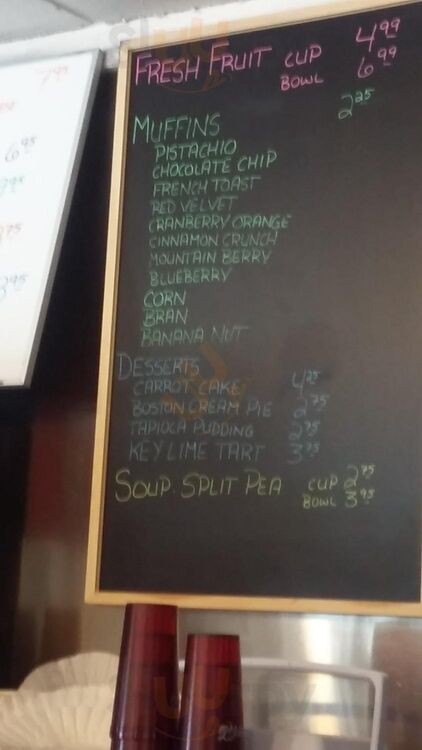 FRESH FRUIT CUP 4.99
BOWL 6.99
MUFFINS 2.25
PISTACHIO
CHOCOLATE CHIP
FRENCH TOAST
RED VELVET
CRANBERRY ORANGE
CINNAMON CRUNCH
MOUNTAIN BERRY
BLUEBERRY
CORN
BRAN
BANANA NUT
DESSERTS
CARROT CAKE 4.25
BOSTON CREAM PIE 2.75
TAPIOCA PUDDING 2.75
KEY LIME TART 3.75
SOUP. SPLIT PEA CUP 2.75
BOWL 3.95
6.95